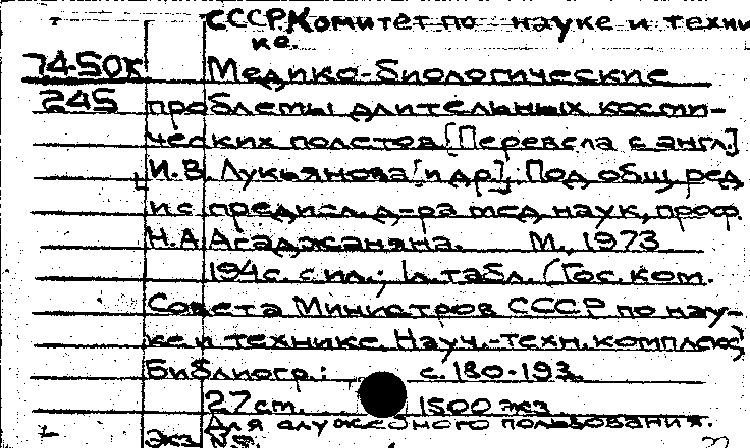 СССР. Комитет по науке и техни-
ке.
74-50К Медико-биологические
245 проблемы длительных косми-
ческих полетов [Перевела с англ.]
И.В. Лукьянова [и др.]. Под общ. ред.
и с предисл. д-ра мед. наук, проф.
Н.А. Агаджаняна. М., 1973
194с. с ил.; 1л. табл. (Гос. ком.
Совета Министров СССР по нау-
ке и технике. Науч.-техн. комплекс)
Библиогр.: с. 180-193.
27см. 1500 экз.
Для служебного пользования.
Экз.